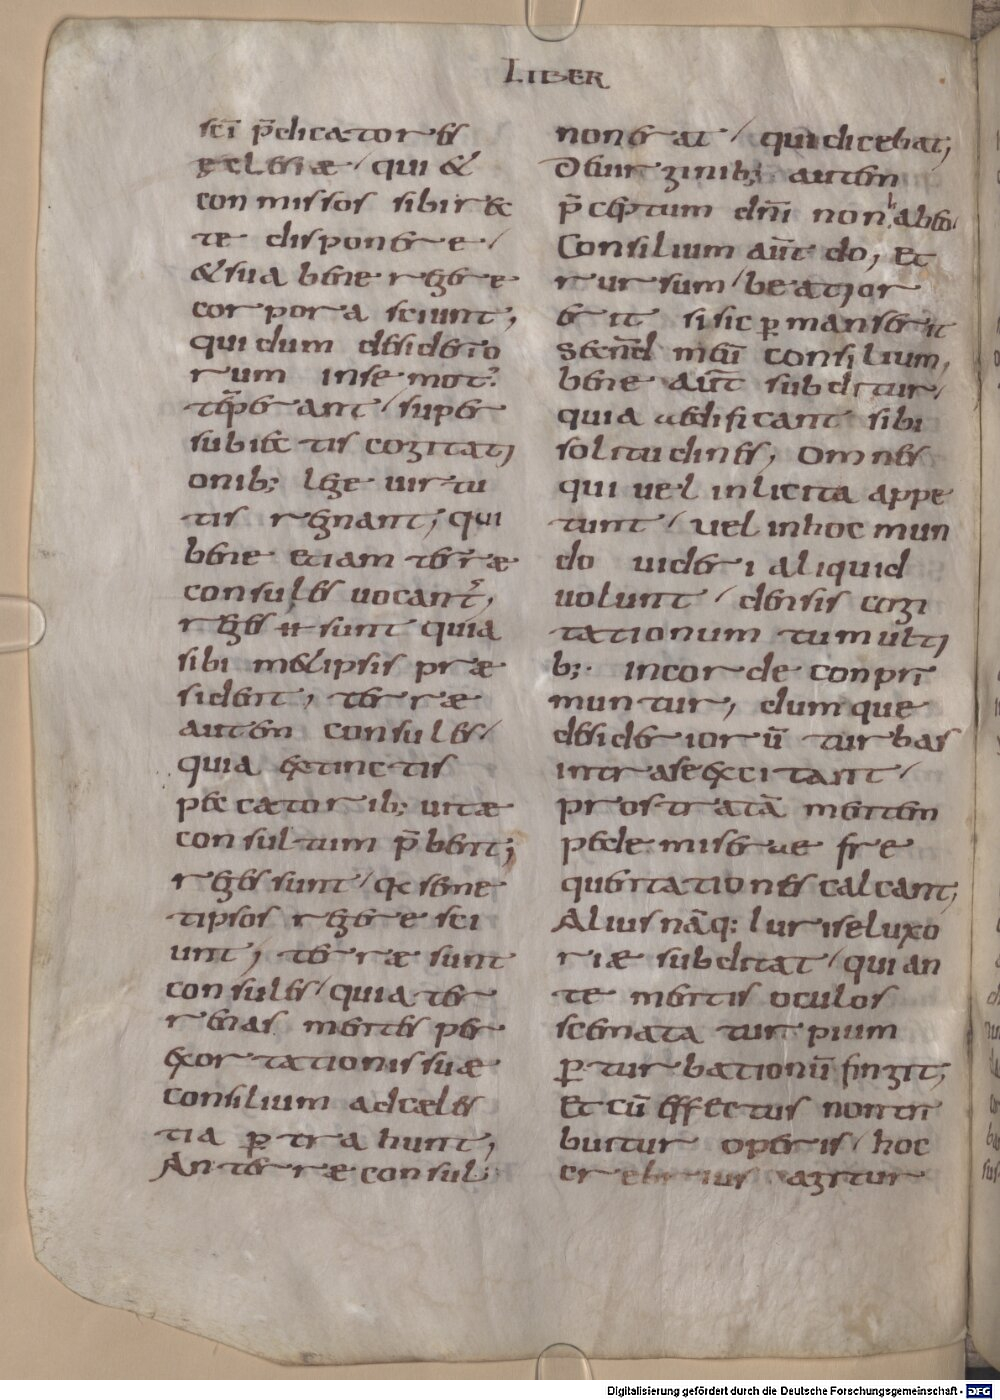 LIBER
sc̄i p̄dicatores
ecclesiae / qui &
conmissos sibi rec
te disponere /
& sua bene regere
corpora sciunt;
qui dum desiderio
rum in se mot'
tēperant / super
subiectis cogitati
onib; lege uirtu
tis regnant; qui
bene etiam terrae
consules uocant';
reges ÷ sunt quia
sibim&ipsis prae
sident; terrae
autem consules /
quia extinctis
peccatorib; uitae
consultum p̄bent;
reges sunt / qi seme
tipsos regere sci
unt; terrae sunt
consules / quia ter
renas mentes per
exortationis suae
consilium ad caeles
tia ꝑtrahunt;
An terrae consul
non erat / qui dicebat;
De uirginib; autem
p̄ceptum dn̄i non habeo /
Consilium aūt do; Et
rursum / beatior
erit si sic ꝑmanserit
Secn̄d meū consilium;
bene aūt subditur /
quia aedificant sibi
solitudines; Omnes
qui uel inlicita appe
tunt / uel in hoc mun
do uideri aliquid
uolunt / densis cogi
tationum tumulti
b; in corde conpri
muntur; dumque
desideriorū turbas
intra se excitant /
prostratā mentem
pede miserae fre
quentationes calcant;
Alius nāq: iuri se luxo
riae subditat / qui an
te mentis oculos
scemata turpium
ꝑturbationū fingit;
Et cū effectus non tri
buitur operis / hoc
crebrius agitur
Digitalisierung gefördert durch die Deutsche Forschungsgemeinschaft - DFG